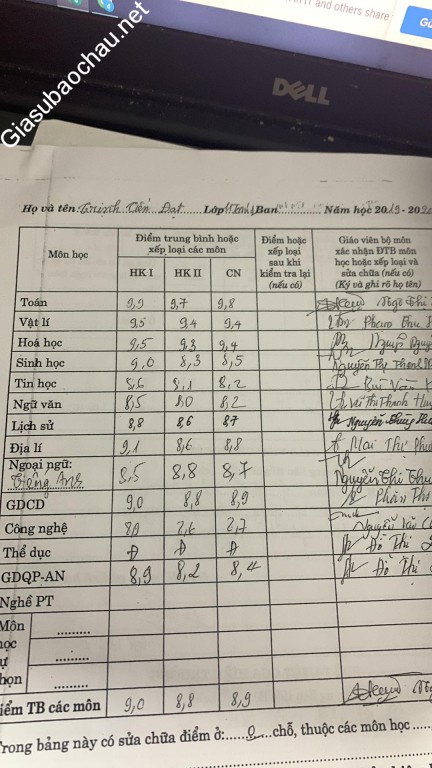 and others share
Giasubaochau.net
DELL
Họ và tên: Trịnh Tiến Đạt Lớp Ban Năm học 2019 - 202
Môn học
Điểm trung bình hoặc xếp loại các môn
HK I HK II CN
Điểm hoặc
xếp loại
sau khi
kiểm tra lại
(nếu có)
Giáo viên bộ môn
xác nhận ĐTB môn
học hoặc xếp loại và
sửa chữa (nếu có)
(Ký và ghi rõ họ tên)
Toán 9,9 9,7 9,8 Ngô Thị
Vật lí 9,5 9,4 9,4 Phạm Thu
Hoá học 9,5 9,3 9,4
Sinh học 9,0 8,3 8,5 Nguyễn Thị Thanh
Tin học 8,6 8,1 8,2 Bùi Văn
Ngữ văn 8,5 8,0 8,2 Vũ Thị Thanh
Lịch sử 8,8 8,6 8,7 Nguyễn
Địa lí 9,1 8,6 8,8 Mai Thị
Ngoại ngữ:
Tiếng Anh 8,5 8,8 8,7 Nguyễn Thị Thu
GDCD 9,0 8,8 8,9 Phan Thị
Công nghệ Nguyễn Văn
Thể dục Đ Đ Đ Đỗ Thị
GDQP-AN 8,9 8,2 8,4 Đỗ Thị
Nghề PT
Môn
học
tự
chọn
Điểm TB các môn 9,0 8,8 8,9
Trong bảng này có sửa chữa điểm ở: 0 chỗ, thuộc các môn học